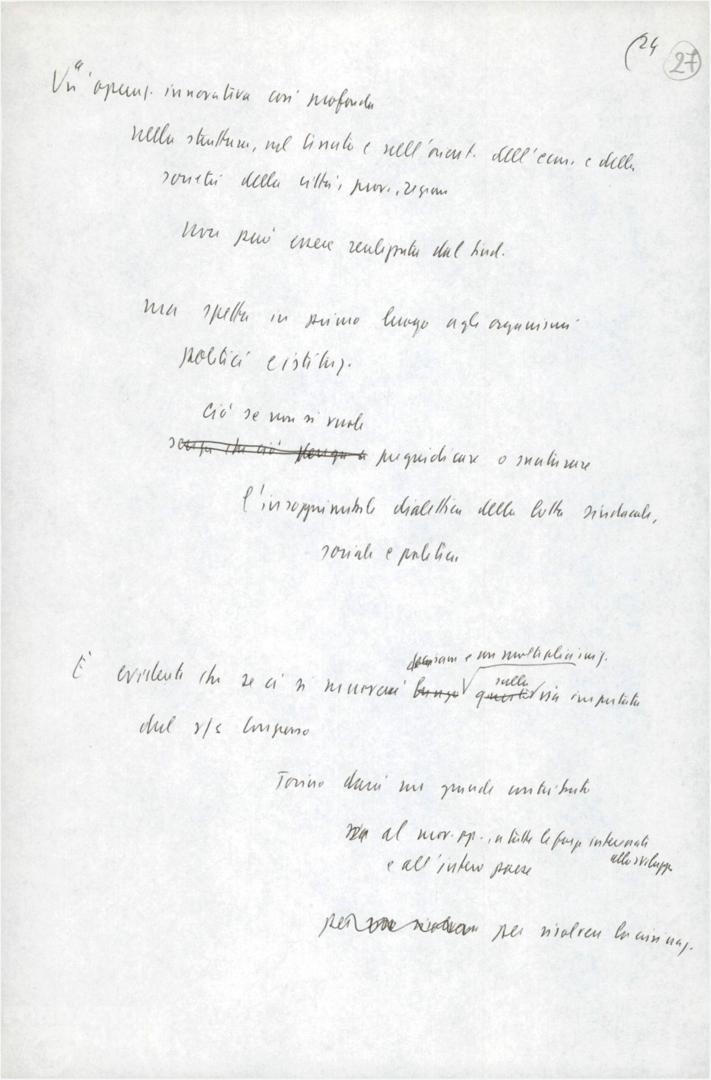 (24 27
Un'operaz. innovativa così profonda
nella struttura, nel tessuto e nell'orient. dell'econ. e della
società della città, prov., regione
non può essere realizzata dal sind.
ma spetta in primo luogo agli organismi
politici e istituz.
Ciò se non si vuole
senza che ciò venga a pregiudicare o snaturare
l'insopprimibile dialettica della lotta sindacale,
sociale e politica
e con molteplici iniz.
È evidente che se ci si muoverà lungo sulla questa via impostata
dal n/s Congresso
Torino darà un grande contributo
al mov. op., a tutte le forze interessate
allo sviluppo
e all'intero paese
per per risolvere la crisi naz.